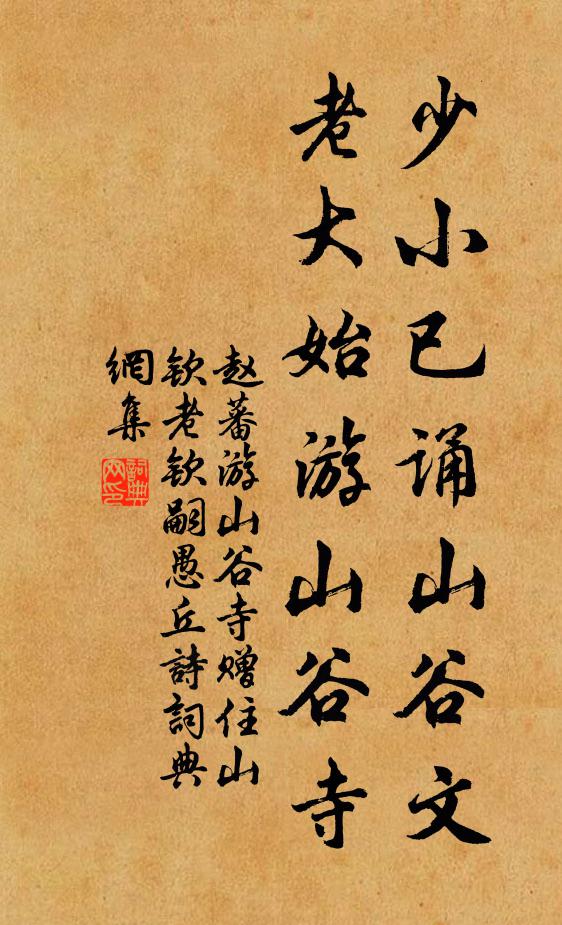 少小已诵山谷文
老大始游山谷寺
赵蕃游山谷寺赠住山
钦老钦嗣愚丘詩詞典
網集
詞典網印